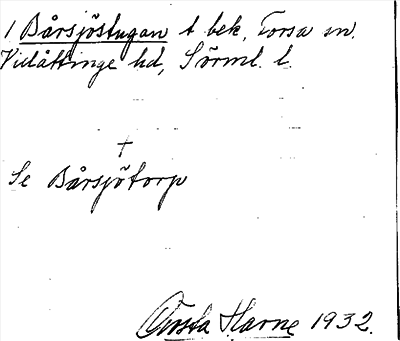 1 Bårsjöstugan t bek, Torsa sn.
Vilåttinge hd, Sörml. l.
+
Se Bårsjötorp
Gösta Harne 1932.